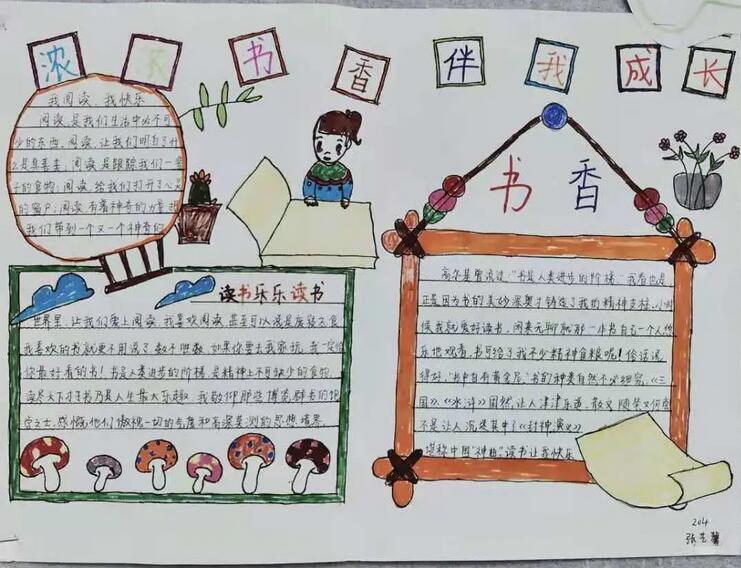 浓浓书香伴我成长
我阅读、我快乐
阅读,是我们生活中必不可
少的东西,阅读,让我们明白了什
么是真善美;阅读,是跟踪我们一辈
子的食物;阅读,给我们打开了心灵
的窗户;阅读,有着神奇的力量,把
我们带到一个又一个神奇的
读书乐乐读书
世界里,让我们爱上阅读,我喜欢阅读,甚至可以说是废寝忘食,
我喜欢的书就更不用说了,数不胜数。如果你要去我家玩,我一定给
你最好看的书!书是人类进步的阶梯,是精神上不可缺少的食物,
读尽天下才子书乃是人生最大乐趣。我敬仰那些博览群书的饱
学之士,感慨他们傲视一切的态度和高深莫测的思想境界。
书香
高尔基曾说过:"书是人类进步的阶梯。"我看也是,
正是因为书的美妙深奥才铸造了我的精神支柱。小时
候我就爱好读书,闲来无聊就那一本书自己一个人傻
乐地观看,书可给了我不少精神食粮呢!俗话说
得好,"书中自有黄金屋"书的种类自然不必细究,《三
国》、《水浒》固然,让人津津乐道,散文、随笔又何尝
不是让人沉迷其中了《封神演义》
堪称中国"神曲"读书让我快乐
204
张艺馨